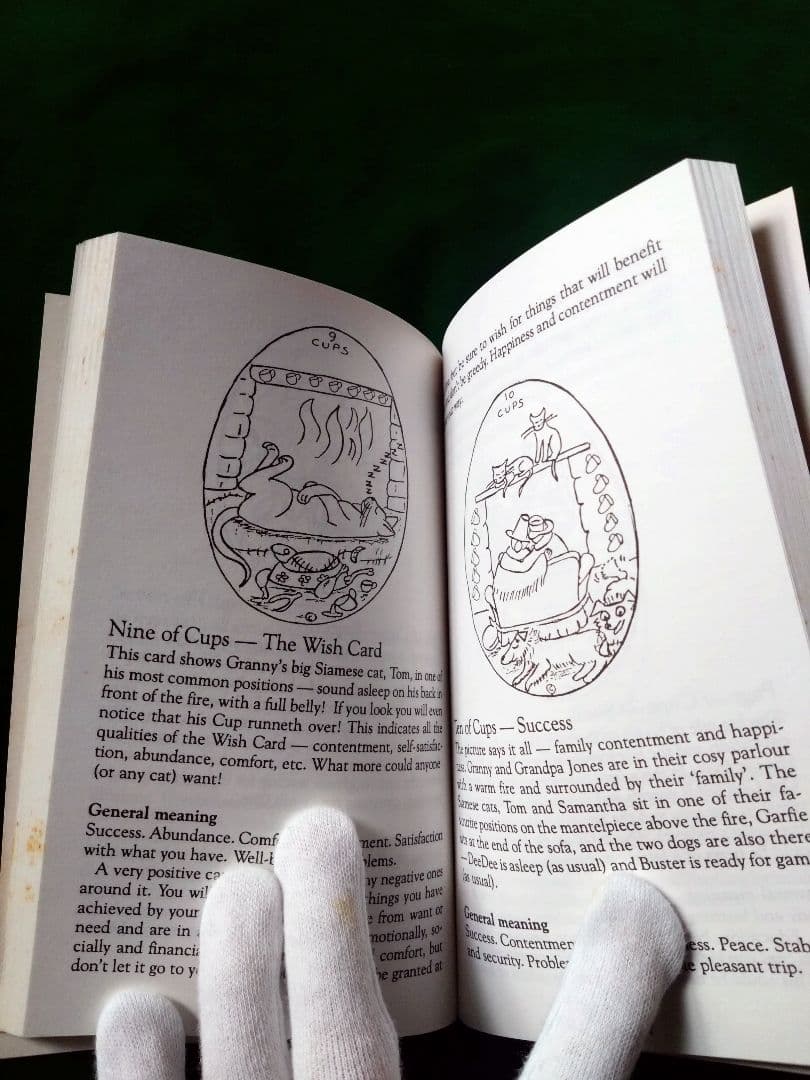 9
CUPS
Nine of Cups — The Wish Card
This card shows Granny's big Siamese cat, Tom, in one of
his most common positions — sound asleep on his back in
front of the fire, with a full belly! If you look you will even
notice that his Cup runneth over! This indicates all the
qualities of the Wish Card — contentment, self-satisfac-
tion, abundance, comfort, etc. What more could anyone
(or any cat) want!
General meaning
Success. Abundance. Satisfaction
with what you have.
A very positive negative ones
around it. You things you have
achieved by your from want or
need and are in
cially and comfort, but
don't let it go to be granted at
be sure to wish for things that will benefit
don't be greedy. Happiness and contentment will
10
CUPS
Ten of Cups — Success
The picture says it all — family contentment and happi-
ness. Granny and Grandpa Jones are in their cosy parlour
with a warm fire and surrounded by their 'family'. The
Siamese cats, Tom and Samantha sit in one of their fa-
vourite positions on the mantelpiece above the fire, Garfie
at the end of the sofa, and the two dogs are also there
—DeeDee is asleep (as usual) and Buster is ready for gam
(as usual).
General meaning
Success. Peace. Stab
and security. pleasant trip.